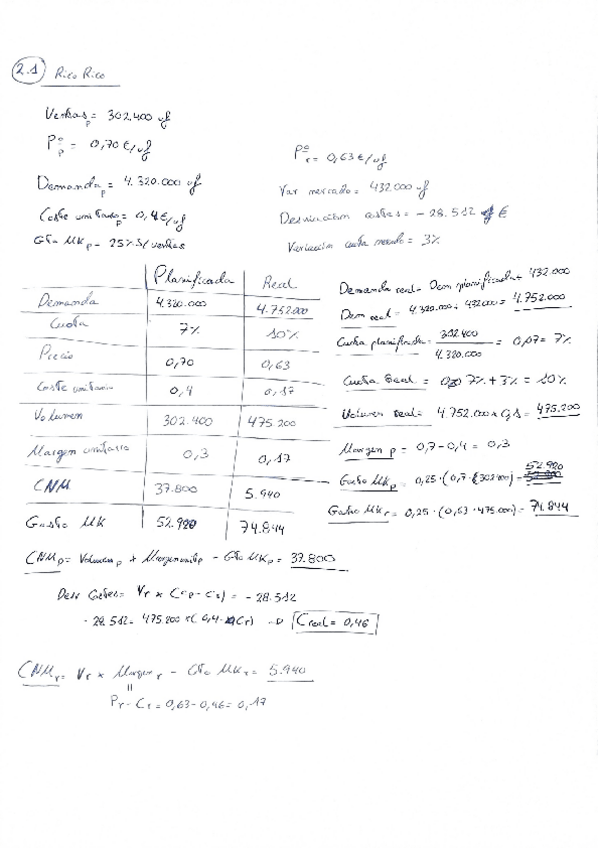 2.1 Rico Rico
Ventas p = 302.400 uf
Pº p = 0,70 €/uf
Pº r = 0,63 €/uf
Demanda p = 4.320.000 uf
Var mercado = 432.000 uf
Coste unitario p = 0,4 €/uf
Desviación costes = - 28.512 €
Gto MK p = 25% s/ventas
Variación cuota mercado = 3%
Planificada Real
Demanda 4.320.000 4.752.000
Cuota 7% 10%
Precio 0,70 0,63
Coste unitario 0,4 0,17
Volumen 302.400 475.200
Margen unitario 0,3 0,17
CNM 37.800 5.940
Gasto MK 52.920 74.844
Demanda real = Dem planificada + 432.000
Dem real = 4.320.000 + 432000 = 4.752.000
Cuota planificada = 302.400 / 4.320.000 = 0,07 = 7%
Cuota Real = 7% + 3% = 10%
Volumen real = 4.752.000 x 0,1 = 475.200
Margen p = 0,7 - 0,4 = 0,3
Gasto MK p = 0,25 · (0,7 · 302400) = 52.920
Gasto MK r = 0,25 · (0,63 · 475.000) = 74.844
CNM p = Volumen p x Margen unit p - Gto MK p = 37.800
Desv Costes = Vr x (Cp - Cr) = - 28.512
- 28.512 = 475.200 x (0,4 - Cr) → C real = 0,46
CNM r = Vr x Margen r - Gto MK r = 5.940
||
Pr - Cr = 0,63 - 0,46 = 0,17